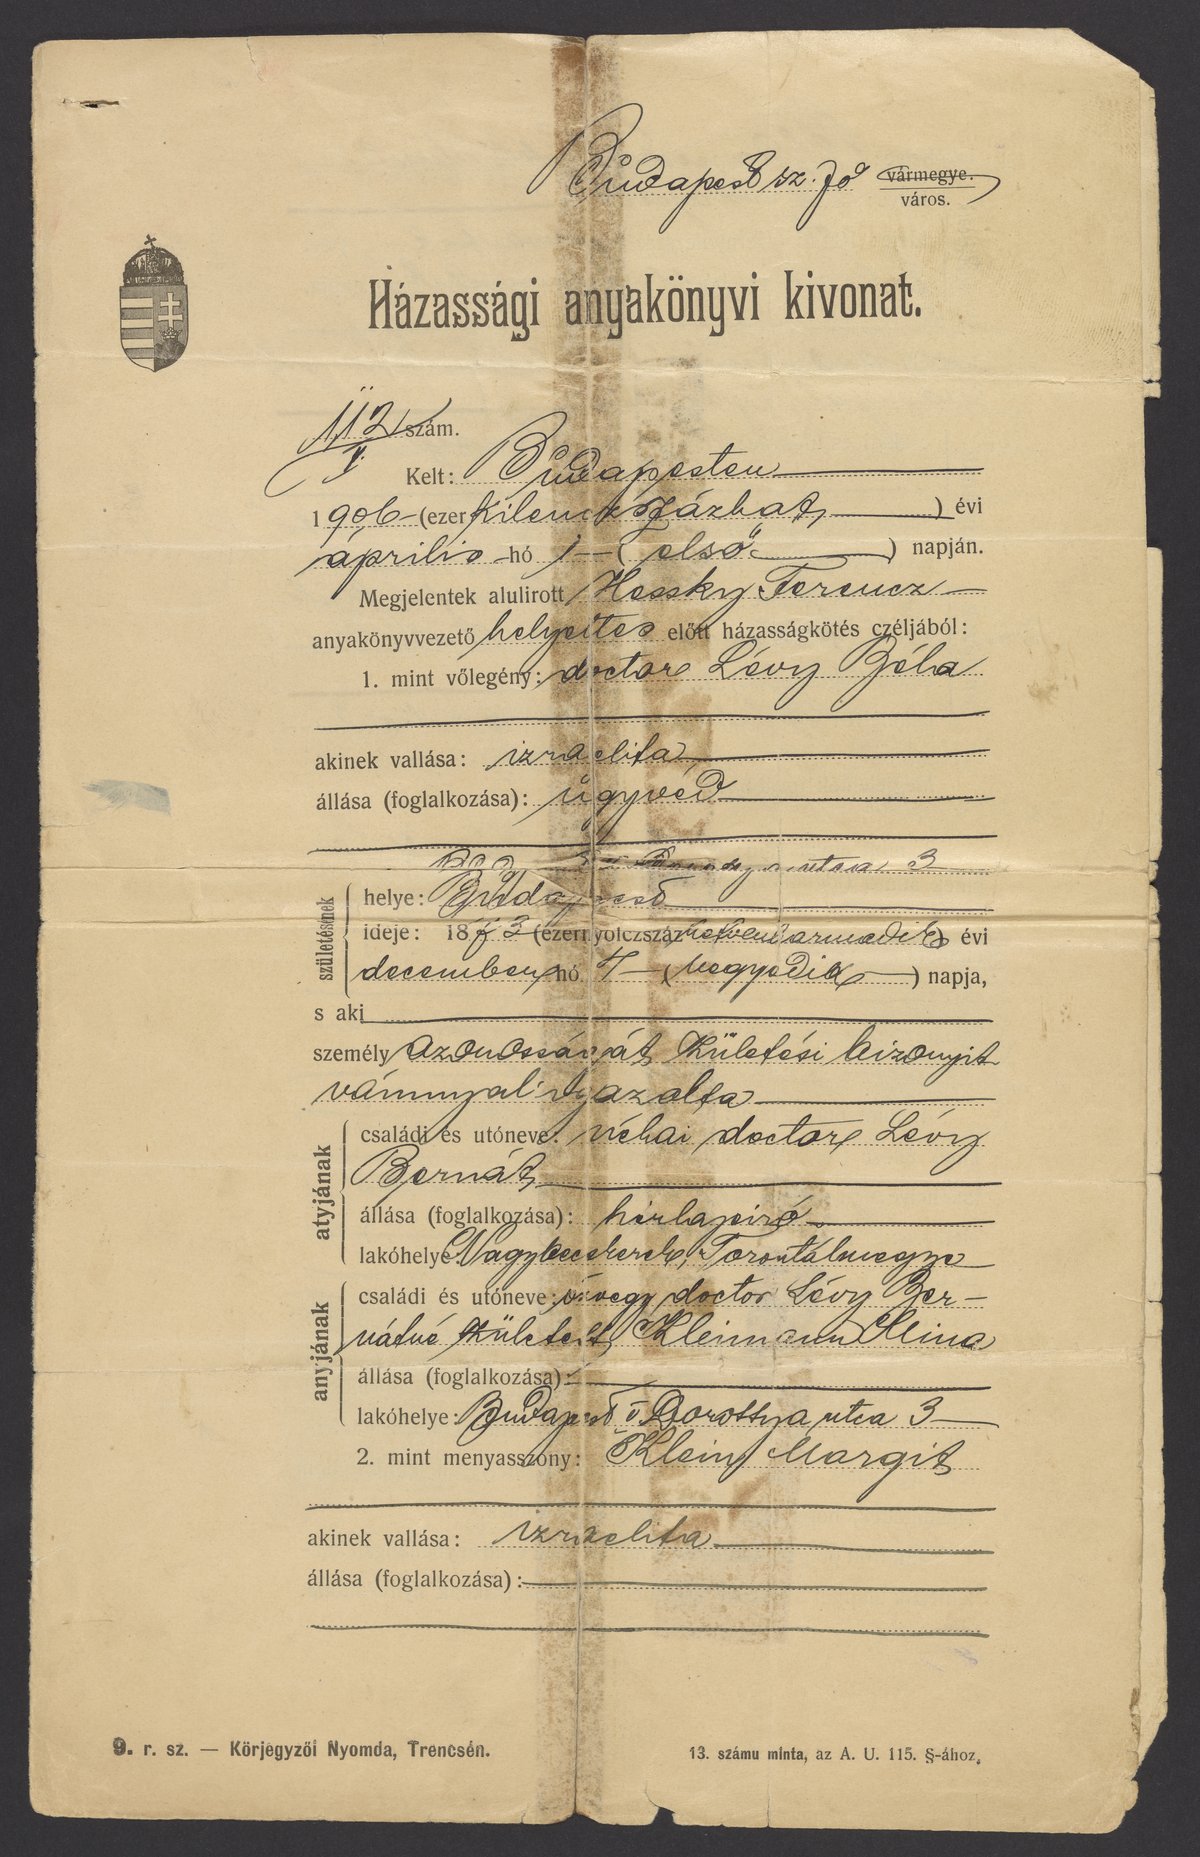 Budapest sz. fő vármegye.
város.
Házassági anyakönyvi kivonat.
112 szám.
V.
Kelt: Budapesten
1906 (ezer kilenczszázhat) évi
április hó 1 (első) napján.
Megjelentek alulirott Hessky Ferencz
anyakönyvvezető helyettes előtt házasságkötés czéljából:
1. mint vőlegény: doctor Lévy Béla
akinek vallása: izraelita
állása (foglalkozása): ügyvéd
utcza 3
születésének
helye: Budapest
ideje: 1873 (ezernyolczszáz hetvenharmadik) évi
december hó 4 (negyedik) napja,
s aki
személyazonosságát születési bizonyit
vánnyal igazolta
atyjának
családi és utóneve: néhai doctor Lévy
Bernát
állása (foglalkozása): hirlapiró
lakóhelye: Nagybecskerek, Torontálmegye
anyjának
családi és utóneve: özvegy doctor Lévy Ber-
nátné született Kleimann Mina
állása (foglalkozása):
lakóhelye: Budapest V Dorottya utca 3
2. mint menyasszony: Klein Margit
akinek vallása: izraelita
állása (foglalkozása):
9. r. sz. — Körjegyzői Nyomda, Trencsén.
13. számu minta, az A. U. 115. §-ához.